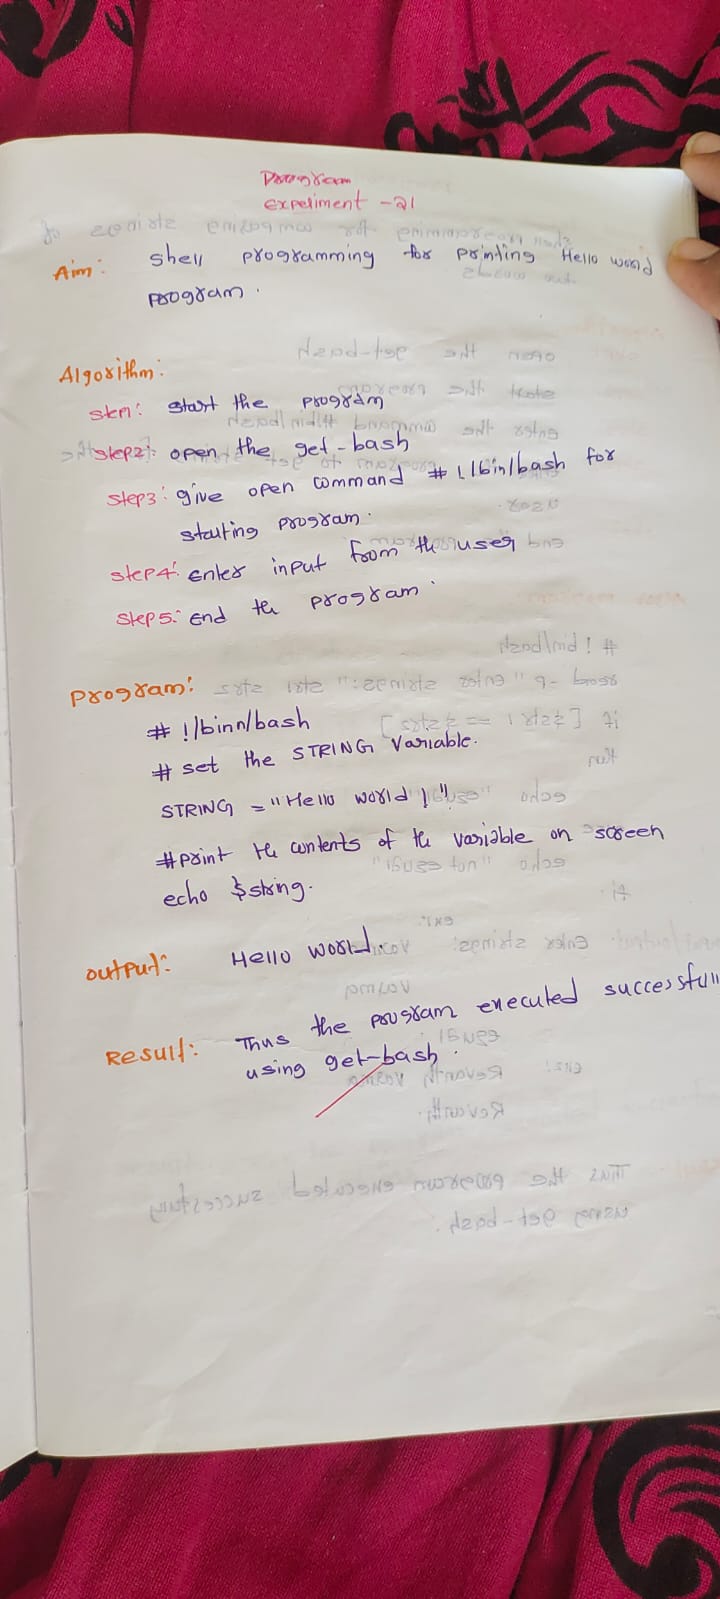 Program
Experiment - 21
Aim: Shell programming for printing Hello world
program.
Algorithm:
Step1: Start the program
Step2: open the get-bash
Step3: give open command # !/bin/bash for
starting program.
Step4: Enter input from the user
Step5: End the program.
Program:
# !/binn/bash
# set the STRING variable.
STRING = "Hello world!"
#print the contents of the variable on screen
echo $string.
output: Hello world.
Result: Thus the program executed successfull
using get-bash.